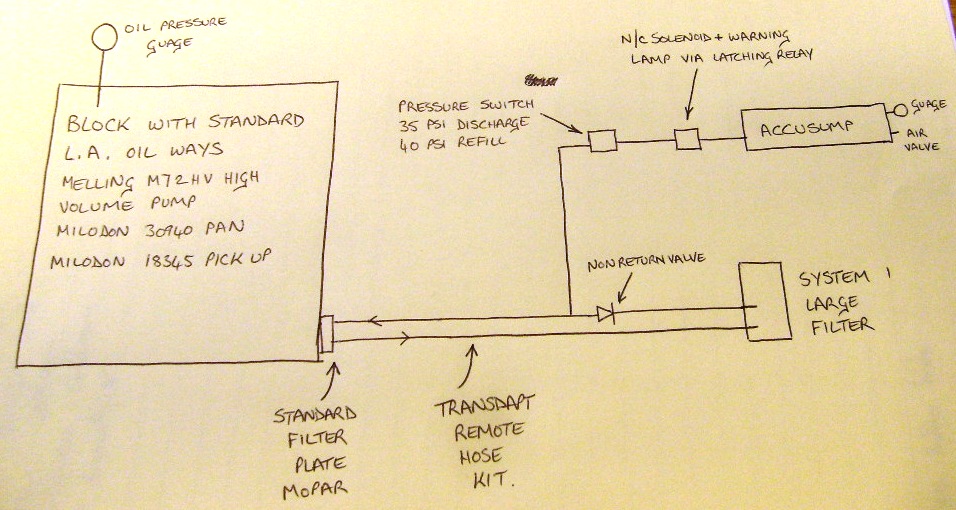 OIL PRESSURE
GUAGE
BLOCK WITH STANDARD
L.A. OIL WAYS
MELLING M72HV HIGH
VOLUME PUMP
MILODON 30940 PAN
MILODON 18345 PICK UP
PRESSURE SWITCH
35 PSI DISCHARGE
40 PSI REFILL
N/C SOLENOID + WARNING
LAMP VIA LATCHING RELAY
ACCUSUMP
GUAGE
AIR
VALVE
NON RETURN VALVE
SYSTEM 1
LARGE
FILTER
STANDARD
FILTER
PLATE
MOPAR
TRANSDAPT
REMOTE
HOSE
KIT.